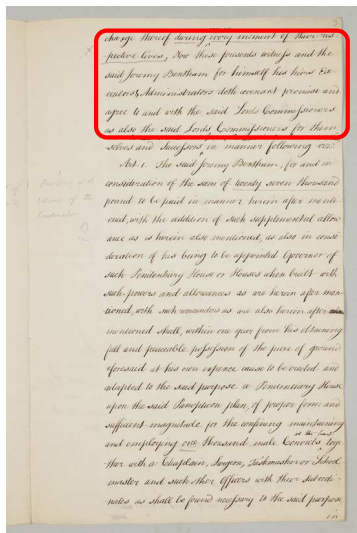 charge thereof during every moment of their res-
pective lives, Now these presents witness and the
said Jeremy Bentham for himself his heirs Exe-
cutors & Administrators doth covenant promise and
agree to and with the said Lords Commissioners
as also the said Lords Commissioners for them
selves and Successors in manner following viz:
Art. 1. The said Jeremy Bentham, for and in
consideration of the sum of twenty seven thousand
pound to be paid in manner herein after menti-
oned, with the addition of such supplemental allow
ance as is herein also mentioned, as also in consi
deration of his being to be appointed Governor of
such Penitentiary House or Houses when built with
such powers and allowances as are herein after men
tioned, with such remandous as are also herein after
mentioned shall, within one year from his obtaining
full and peaceable possession of the piece of ground
aforesaid at his own expence cause to be erected and
adapted to the said purpose a Penitentiary House
upon the said Panopticon plan, of proper form and
sufficient magnitude for the confining maintaining
and employing one thousand male Convicts at the least toge
ther with a Chaplain, Surgeon, Taskmaster or School
master and such other Officers with their subordi-
nates as shall be found necessary to the said purpose
in